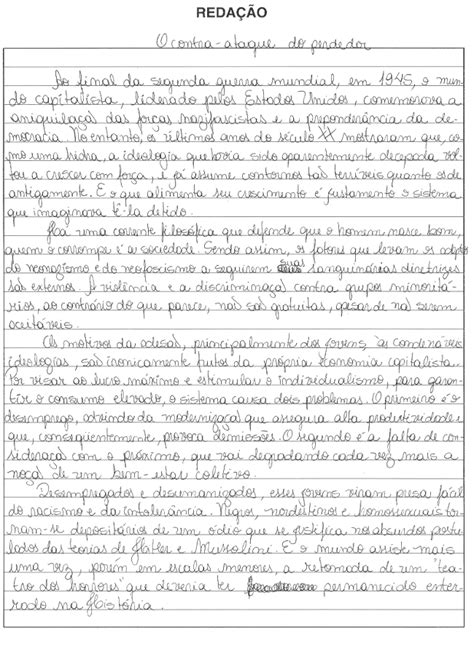 REDAÇÃO
O contra-ataque do perdedor
Ao final da segunda guerra mundial, em 1945, o mun-
do capitalista, liderado pelos Estados Unidos, comemorava a
aniquilação das forças nazifascistas e a preponderância da de-
mocracia. No entanto, os últimos anos do século XX mostraram que, co-
mo uma hidra, a ideologia que havia sido aparentemente decepada vol-
tou a crescer com força, e já assume contornos tão terríveis quanto os de
antigamente. E o que alimenta seu crescimento é justamente o sistema
que imaginava tê-la detido.
Há uma corrente filosófica que defende que o homem nasce bom,
quem o corrompe é a sociedade. Sendo assim, os fatores que levam os adeptos
do neonazismo e do neofascismo a seguirem suas sanguinárias diretrizes
são externos. A violência e a discriminação contra grupos minoritá-
rios, ao contrário do que parece, não são gratuitas, apesar de não serem
aceitáveis.
Os motivos da adesão, principalmente dos jovens, às condenáveis
ideologias, são ironicamente frutos da própria economia capitalista.
Por visar ao lucro máximo e estimular o individualismo, para garan-
tir o consumo elevado, o sistema causa dois problemas. O primeiro é o
desemprego, advindo da modernização que assegura alta produtividade e
que, conseqüentemente, provoca demissões. O segundo é a falta de con-
sideração com o próximo, que vai degradando cada vez mais a
noção de um bem-estar coletivo.
Desempregados e desumanizados, esses jovens viram presa fácil
do racismo e da intolerância. Negros, nordestinos e homossexuais tor-
nam-se depositários de um ódio que se justifica nos absurdos postu-
lados das teorias de Hitler e Mussolini. E o mundo assiste mais
uma vez, porém em escalas menores, a retomada de um "tea-
tro dos horrores" que deveria ter permanecido enter-
rado na História.